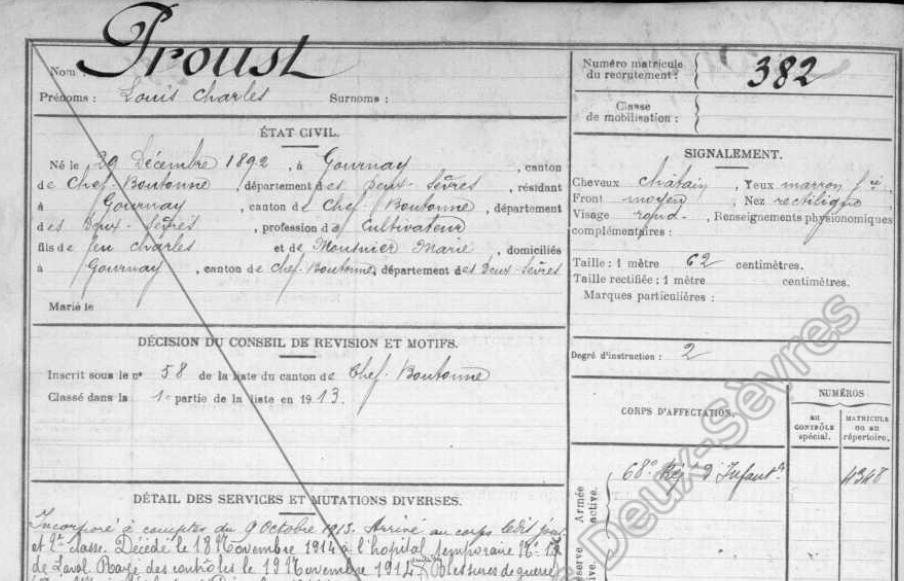 Nom : Proust
Prénoms : Louis Charles Surnoms :
ÉTAT CIVIL.
Né le 29 Décembre 1892, à Gournay, canton
de Chef-Boutonne, département des Deux-Sèvres, résidant
à Gournay, canton de Chef-Boutonne, département
des Deux-Sèvres, profession de Cultivateur
fils de feu Charles et de Mousnier Marie, domiciliés
à Gournay, canton de Chef-Boutonne, département des Deux-Sèvres
Marié le
DÉCISION DU CONSEIL DE REVISION ET MOTIFS.
Inscrit sous le n° 58 de la liste du canton de Chef-Boutonne
Classé dans la 1e partie de la liste en 1913.
DÉTAIL DES SERVICES ET MUTATIONS DIVERSES.
Incorporé à compter du 9 Octobre 1913. Arrivé au corps le dit jour
et 2e classe. Décédé le 18 Novembre 1914 à l'hopital temporaire N°
de Laval. Rayé des contrôles le 19 Novembre 1914. Blessures de guerre
Numéro matricule
du recrutement : 382
Classe
de mobilisation :
SIGNALEMENT.
Cheveux châtain, Yeux marron f cé
Front moyen, Nez rectiligne
Visage rond, Renseignements physionomiques
complémentaires :
Taille : 1 mètre 62 centimètres.
Taille rectifiée : 1 mètre centimètres.
Marques particulières :
Degré d'instruction : 2
CORPS D'AFFECTATION.
NUMÉROS
au
CONTRÔLE
spécial.
MATRICULE
ou au
répertoire.
Armée
active.
68e Rég. d'Infantie 4348
Deux-Sèvres